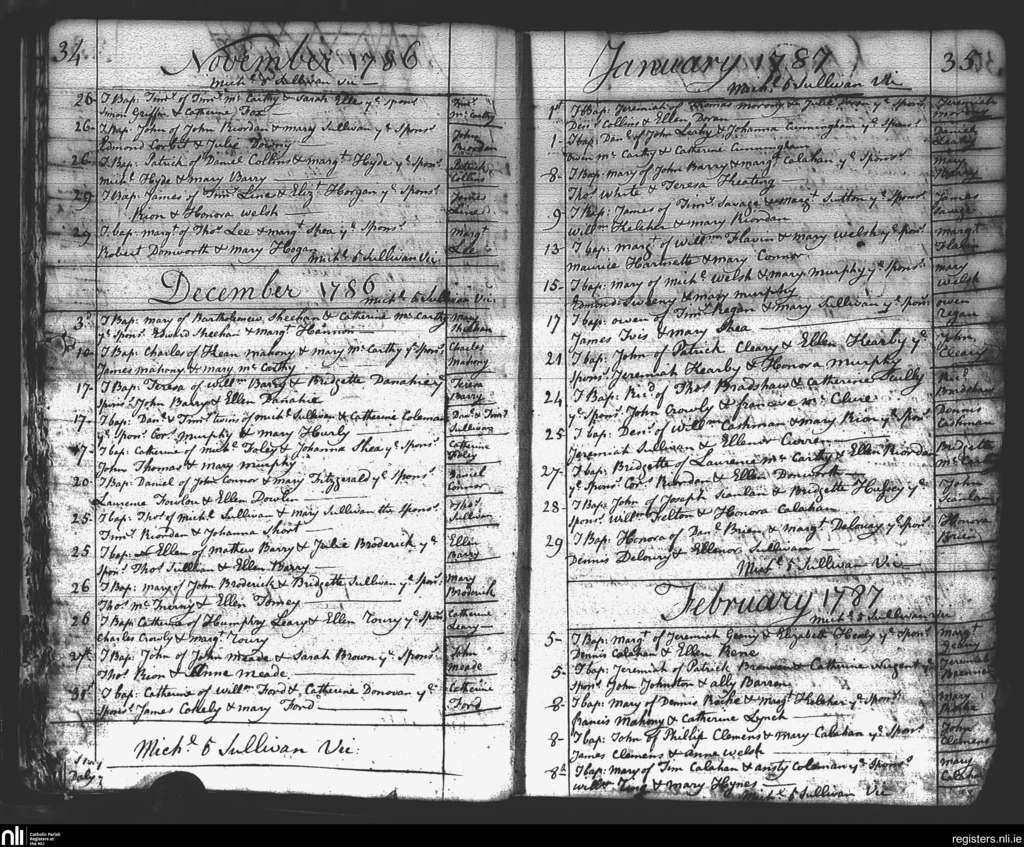 34
November 1786
Mich.l o Sullivan Vic
26 I Bap: Tim.y of Tim.y Mc Carthy & Sarah Elle y.e Spons
Smon Griffin & Catherine Fox
Tim.y
Mc Carthy
26 I Bap: John of John Riordan & Mary Sullivan y.e Spons.s
Edmond Corbet & Julie Downy
John
Riordan
26 I Bap: Patrick of Daniel Collins & Marg.t Hyde y.e Spon.s
Mich.l Hyde & Mary Barry
Patrick
Collins
29 I Bap: James of Tim.y Line & Eliz.t Horgan y.e Spons.s
Rion & Honora Welsh
James
Line
29 I bap: Marg.t of Tho.s Lee & Marg.t Shea y.e Spons.s
Robert Donworth & Mary Hogan
Marg.t
Lee
Mich.l o Sullivan Vic:
December 1786
Mich.l o Sullivan Vic:
3.d I Bap: Mary of Bartholemew Sheehan & Catherine Mc Carthy
y.e Spons.s Edward Sheehan & Marg.t Hannon
Mary
Sheehan
10 I Bap: Charles of Kean Mahony & Mary Mc Carthy y.e Spons.s
James Mahony & Mary Mc Carthy
Charles
Mahony
17 I Bap: Teresa of Will.m Barry & Bridgette Danahie y
Spons.s John Barry & Ellen Danahie
Teresa
Barry
17 I bap: Dan.l & Tim.y twins of Mich.l Sullivan & Catherine Coleman
y.e Spon.s Cor.s Murphy & Mary Hurly
Dan.l & Tim.y
Sullivan
17 I bap: Catherine of Mich.l Foley & Johanna Shea y.e Spons.s
John Thomas & Mary Murphy
Catherine
Foley
20 I Bap: Daniel of John Connor & Mary Fitzgerald y.e Spons.s
Laurence Fowlow & Ellen Dowlin
Daniel
Connor
25 I bap: Tho.s of Mich.l Sullivan & Mary Sullivan the Spons.s
Tim.y Riordan & Johanna Short
Tho.s
Sullivan
25 I bap: Ellen of Mathew Barry & Julie Broderick y.e
Spon.s Tho.s Sullivan & Ellen Barry
Ellen
Barry
26 I Bap: Mary of John Broderick & Bridgette Sullivan y.e Spon.s
Tho.s Mc Inerny & Ellen Toomey
Mary
Broderick
26 I Bap: Catherine of Humphry Leary & Ellen Noury y.e Spons
Charles Crowly & Marg.t Noury
Catherine
Leary
27.th I Bap: John of John Meade & Sarah Brown y.e Spons.s
Tho.s Rion & Anne Meade
John
Meade
31.st I bap: Catherine of Will.m Ford & Catherine Donovan y.e
Spons.s James Conely & Mary Ford
Catherine
Ford
Mich.l o Sullivan Vic:
35
January 1787
Mich.l o Sullivan Vic
1.st I Bap: Jeremiah of Thomas Morony & Julie y.e Spons.s
Den.s Collins & Ellen Doran
Jeremiah
Morony
1 I bap: Dan.l of John Leahy & Johanna Cunningham y.e Spons.s
Owen Mc Carthy & Catherine Cunningham
Daniel
Leahy
8 I Bap: Mary of John Barry & Marg.t Calahan y.e Spons.s
Tho.s White & Teresa Keating
Mary
Barry
9 I Bap: James of Tim.y Savage & Marg.t Sutton y.e Spons.s
Will.m Keleher & Mary Riordan
James
Savage
13 I bap: Marg.t of Will.m Flavin & Mary Welsh y.e Spon.s
Maurice Hartnette & Mary Connor
Marg.t
Flavin
15 I bap: Mary of Mich.l Welsh & Mary Murphy y.e Spon.s
Edmond Sweeny & Mary Murphy
Mary
Welsh
17 I bap: Owen of Tim.y Regan & Mary Sullivan y.e Spon.s
James Ives & Mary Shea
Owen
Regan
21 I bap: John of Patrick Cleary & Ellen Hearby y.e
Spons.s Jeremiah Hearby & Honora Murphy
John
Cleary
24 I Bap: Ric.d of Tho.s Bradshaw & Catherine Scully
y.e Spons.s John Crowly & Mc Clure
Ric.d
Bradshaw
25 I bap: Den.s of Will.m Cashman & Mary Rion y.e Spon.s
Jeremiah Sullivan & Ellenor Curren
Dennis
Cashman
27 I bap: Bridgette of Laurence Mc Carthy & Ellen Riordan
y.e Spons.s Cor.s Riordan & Ellen Donworth
Bridgette
Mc Carthy
28 I Bap: John of Joseph Scanlan & Bridgette y.e
Spons.s Will.m Felton & Honora Calahan
John
Scanlan
29 I Bap: Honora of Dan.l Brien & Marg.t Deloury y.e Spon.s
Dennis Deloury & Ellenor Sullivan
Honora
Brien
Mich.l o Sullivan Vic
February 1787
Mich.l o Sullivan Vic
5 I Bap: Marg.t of Jeremiah Geany & Elizabeth Healy y.e Spon.s
Dennis Calahan & Ellen Rene
Marg.t
Geany
5 I bap: Jeremiah of Patrick Brennan & Catherine Nugent y.e
Spon.s John Johnston & Ally Barron
Jeremiah
Brennan
8 I bap: Mary of Dennis Roche & Marg.t Keleher y.e Spon.s
Francis Mahony & Catherine Lynch
Mary
Roche
8 I bap: John of Phillip Clemens & Mary Calahan y.e Spons.s
James Clemens & Anne Welsh
John
Clemens
8.th I bap: Mary of Tim Calahan & Ansty Coleman y.e Spons.s
Will.m & Mary Hynes
Mary
Calahan
Mich.l o Sullivan Vic
nli
Catholic Parish
Registers at
the NLI
registers.nli.ie